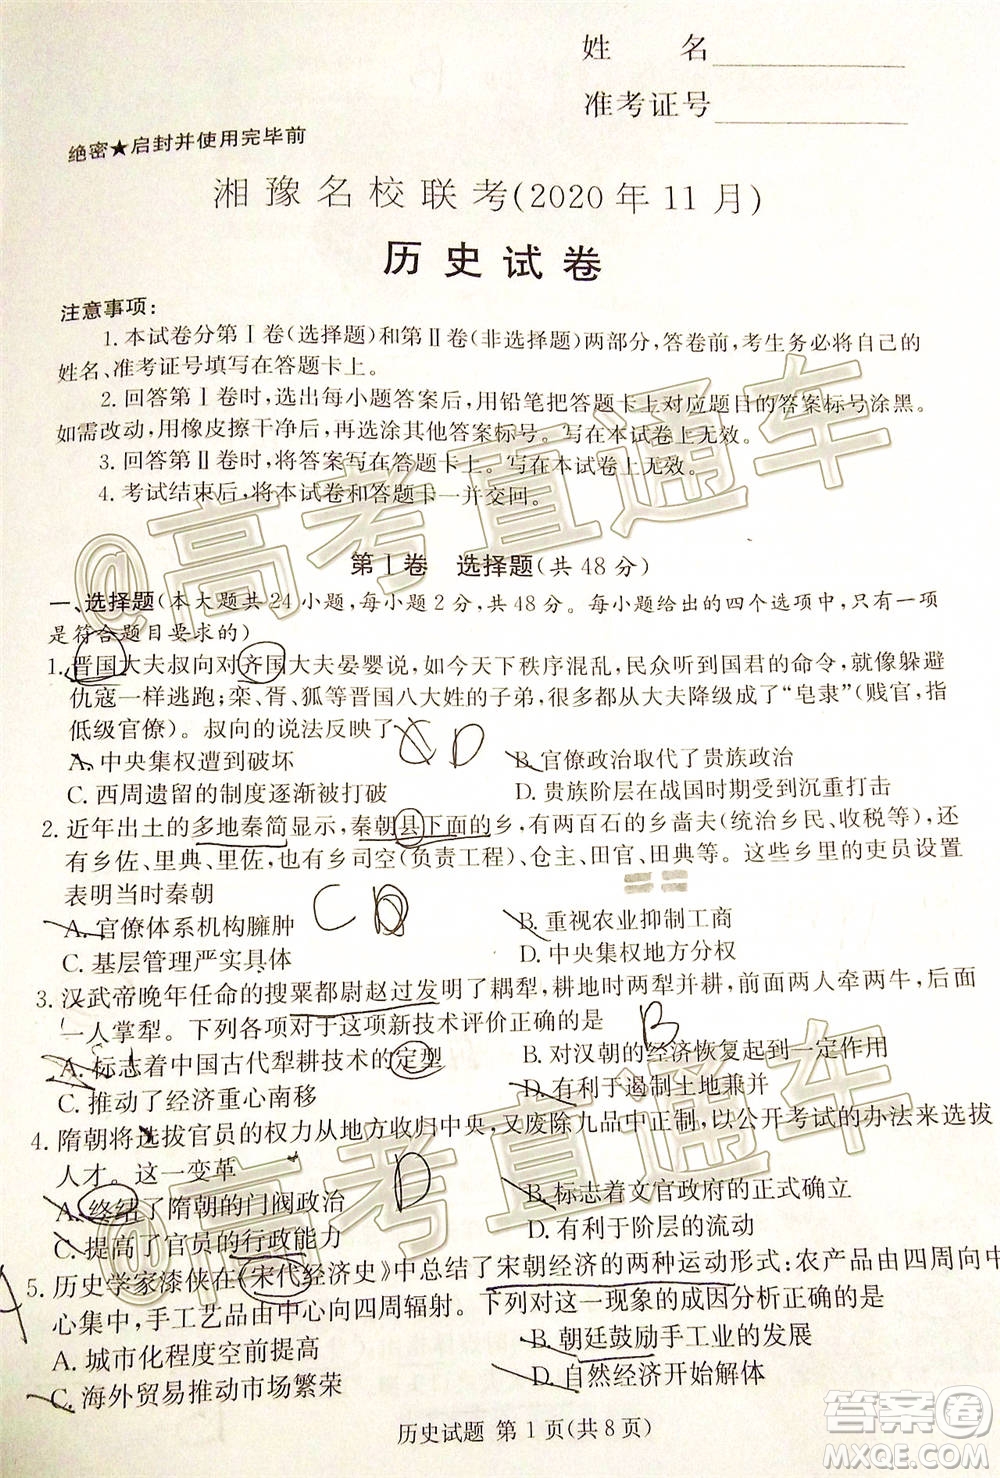 姓　　名
准考证号
绝密★启封并使用完毕前
湘豫名校联考(2020年11月)
历史试卷
注意事项:
1.本试卷分第Ⅰ卷(选择题)和第Ⅱ卷(非选择题)两部分,答卷前,考生务必将自己的
姓名、准考证号填写在答题卡上。
2.回答第Ⅰ卷时,选出每小题答案后,用铅笔把答题卡上对应题目的答案标号涂黑。
如需改动,用橡皮擦干净后,再选涂其他答案标号。写在本试卷上无效。
3.回答第Ⅱ卷时,将答案写在答题卡上。写在本试卷上无效。
4.考试结束后,将本试卷和答题卡一并交回。
@高考直通车
第Ⅰ卷　选择题(共48分)
一、选择题(本大题共24小题,每小题2分,共48分。每小题给出的四个选项中,只有一项
是符合题目要求的)
1.晋国大夫叔向对齐国大夫晏婴说,如今天下秩序混乱,民众听到国君的命令,就像躲避
仇寇一样逃跑;栾、胥、狐等晋国八大姓的子弟,很多都从大夫降级成了“皂隶”(贱官,指
低级官僚)。叔向的说法反映了
D
A.中央集权遭到破坏
B.官僚政治取代了贵族政治
C.西周遗留的制度逐渐被打破
D.贵族阶层在战国时期受到沉重打击
2.近年出土的多地秦简显示,秦朝县下面的乡,有两百石的乡啬夫(统治乡民、收税等),还
有乡佐、里典、里佐,还有乡司空(负责工程)、仓主、田官、田典等。这些乡里的吏员设置
表明当时秦朝
C
A.官僚体系机构臃肿
B.重视农业抑制工商
C.基层管理严实具体
D.中央集权地方分权
3.汉武帝晚年任命的搜粟都尉赵过发明了耦犁,耕地时两犁并耕,前面两人牵两牛,后面
一人掌犁。下列各项对于这项新技术评价正确的是
B
A.标志着中国古代犁耕技术的定型
B.对汉朝的经济恢复起到一定作用
C.推动了经济重心南移
D.有利于遏制土地兼并
4.隋朝将选拔官员的权力从地方收归中央,又废除九品中正制,以公开考试的办法来选拔
人才。这一变革
D
A.终结了隋朝的门阀政治
B.标志着文官政府的正式确立
C.提高了官员的行政能力
D.有利于阶层的流动
@高考直通车
A
5.历史学家漆侠在《宋代经济史》中总结了宋朝经济的两种运动形式:农产品由四周向中
心集中,手工艺品由中心向四周辐射。下列对这一现象的成因分析正确的是
A.城市化程度空前提高
B.朝廷鼓励手工业的发展
C.海外贸易推动市场繁荣
D.自然经济开始解体
历史试题 第1页(共8页)
答案圈
MXQE.COM